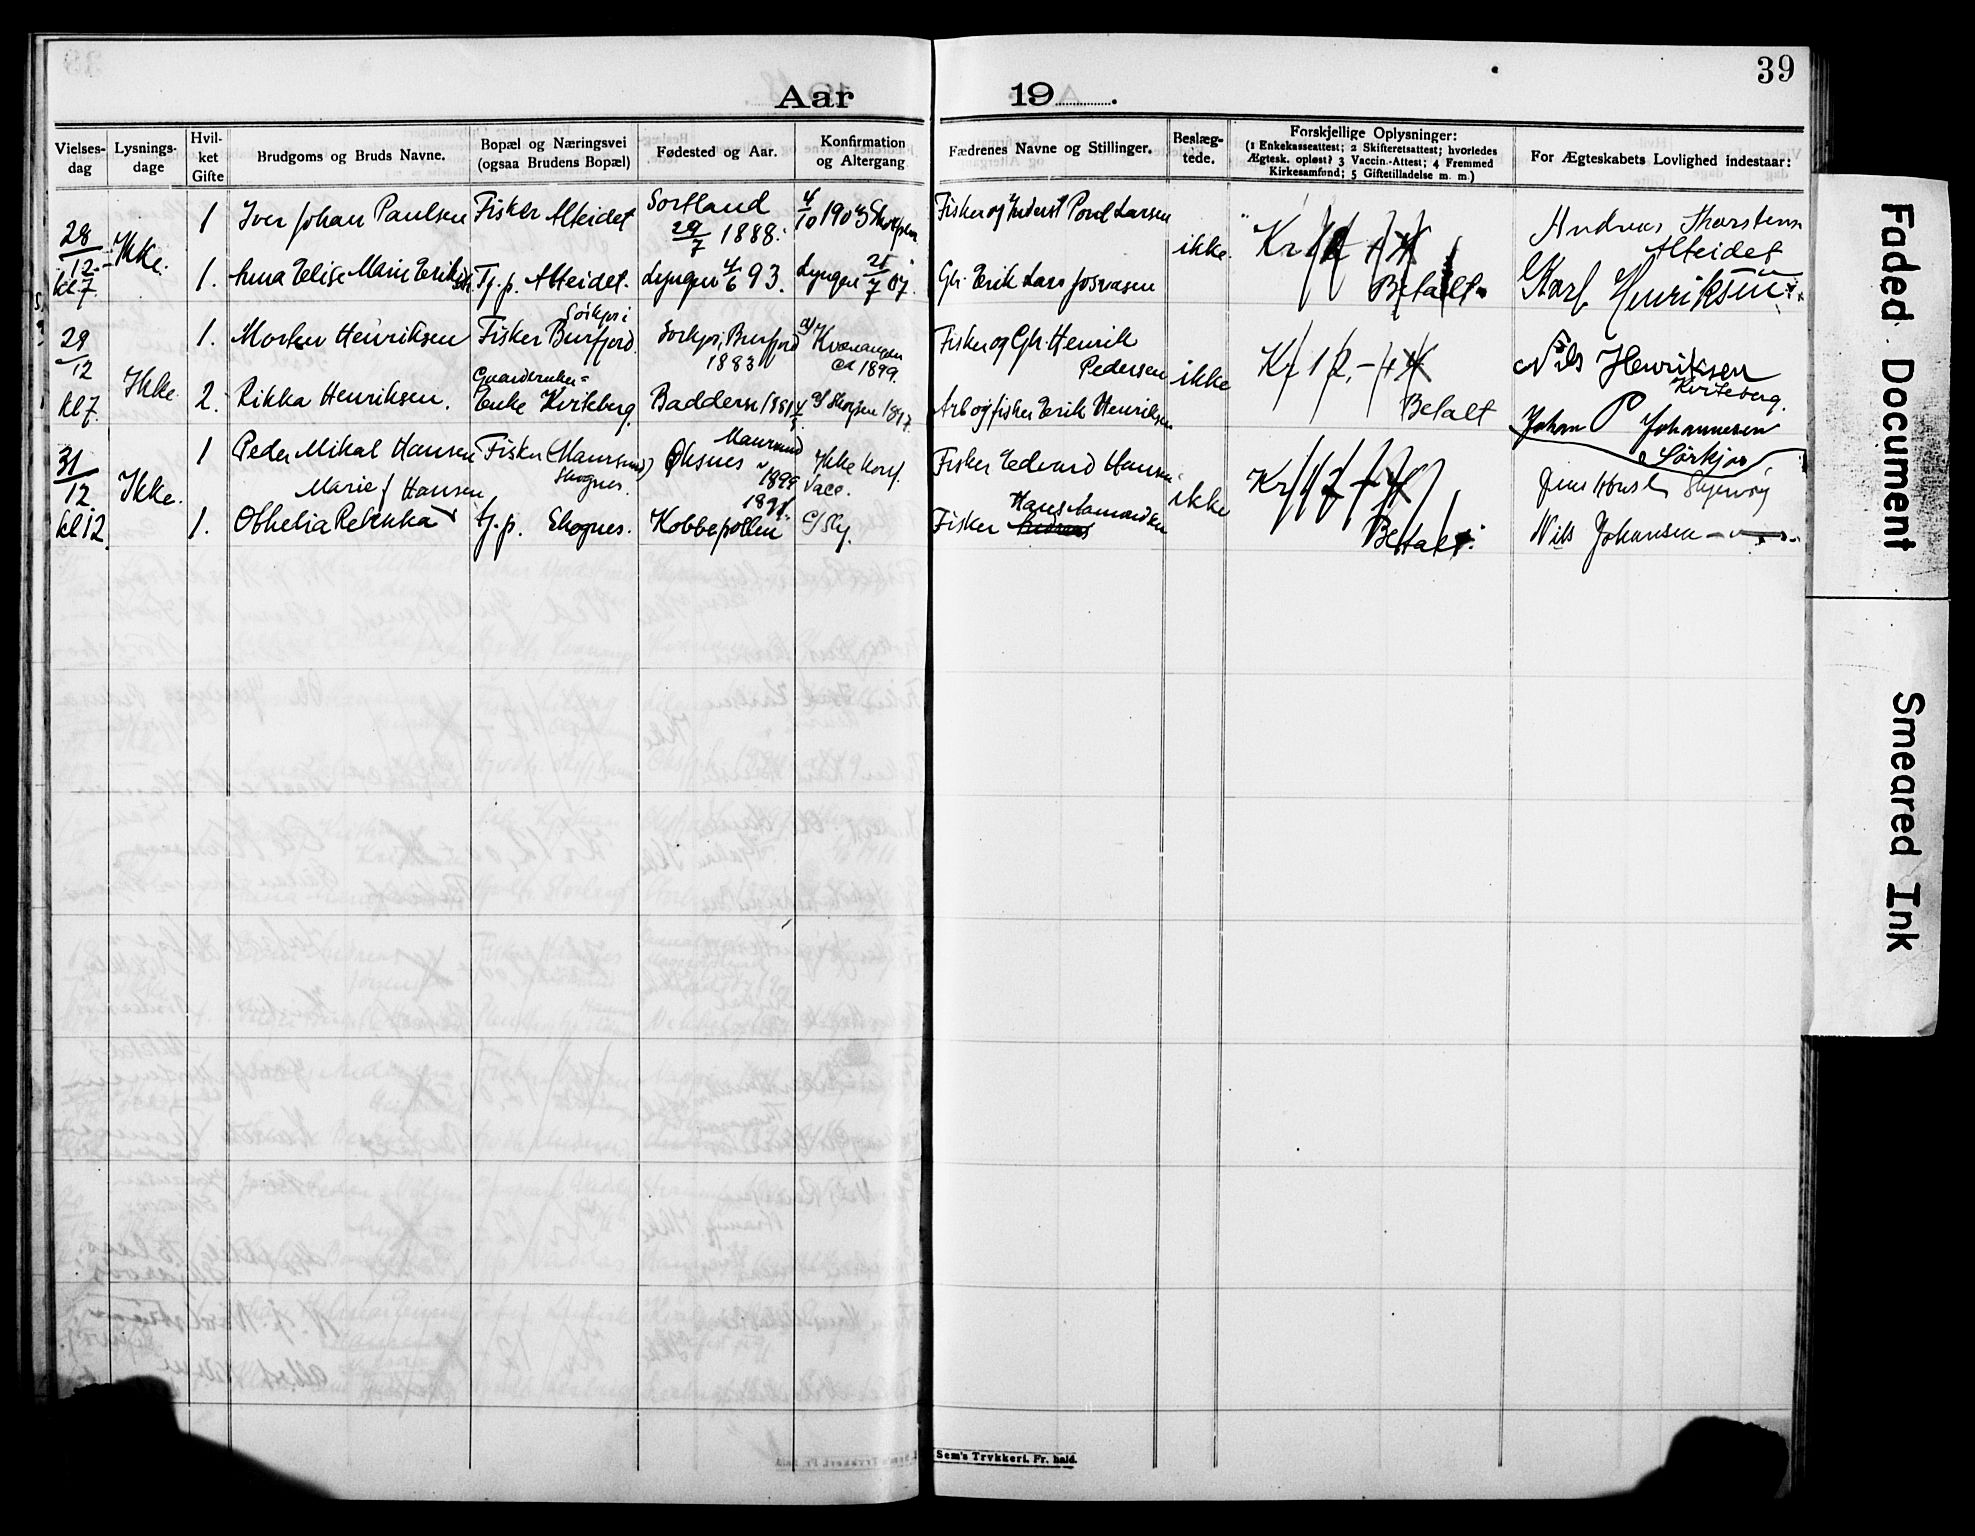 39
Aar 19
Vielses-dag
Lysnings-dage
Hvil-ket Gifte
Brudgoms og Bruds Navne.
Bopæl og Næringsvei (ogsaa Brudens Bopæl)
Fødested og Aar.
Konfirmation og Altergang
Fædrenes Navne og Stillinger.
Beslæg-tede.
Forskjellige Oplysninger:
(1 Enkekasseattest; 2 Skifteretsattest; hvorledes
Ægtesk. opløst? 3 Vaccin.-Attest; 4 Fremmed
Kirkesamfund; 5 Giftetilladelse m. m.)
For Ægteskabets Lovlighed indestaar:
28/12 kl 7.
Ikke.
1 Iver Johan Paulsen Fisker Alteidet Sortland 29/7 1888. 4/10 1903 Fisker og Inderst Poul Larsen
ikke.
Kr 12
Betalt.
Andreas Thorstens
Alteidet
1. Anna Elise Marie Tj. p. Alteidet. Lyngen 4/6 93. Lyngen 21/7 07. Gbr. Erik Lars
Karl Henriksen
28/12 kl 7.
Ikke
1. Morten Henriksen Fisker Burfjord Burfjord 1883 Kvænangen ca 1899. Fisker og Gbr. Henrik Pedersen
ikke
Kr 12,-
Betalt
Nils Henriksen
Kviteberg.
2. Rikka Henriksen. Enke Kviteberg. Badderen 1881 Arb og fisker Erik Henriksen
Johan P Johannesen
Sørkjos
31/12. kl 12.
Ikke.
1 Peder Mikal Hansen Fisker (Maursund) Skognes. Øksnes Maursund 1899 Ikke Konf. Vacc. Fisker Edvard Hansen
ikke
Kr 12
Betalt.
Skjervøy
1. Othelia Marie Hansen tj. p. Skognes. Kobbepollen Fisker Hans
Nils Johansen
Sem's Trykkeri. Fr. hald.
Faded Document
Smeared Ink